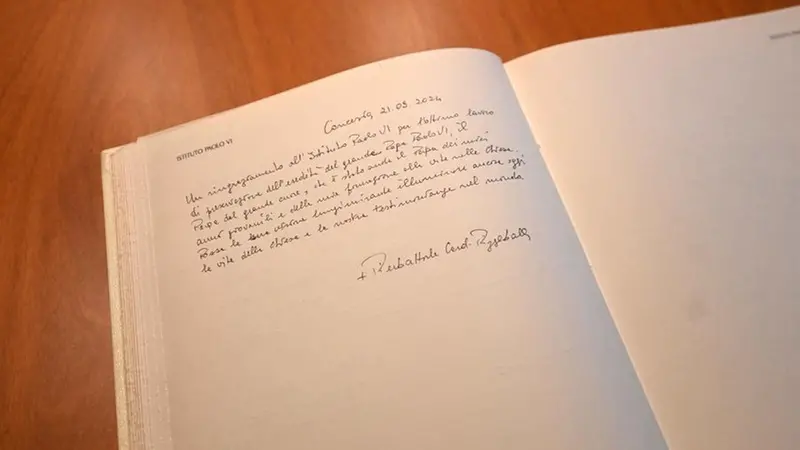 ISTITUTO PAOLO VI
Concesio, 21.09.2024
Un ringraziamento all'Istituto Paolo VI per l'ottimo lavoro
di preservazione dell'eredità del grande Papa Paolo VI, il
Papa dal grande cuore, che è stato anche il Papa dei miei
anni giovanili e della mia formazione alla vita nella Chiesa.
Possa la sua visione lungimirante illuminare ancora oggi
la vita della Chiesa e la nostra testimonianza nel mondo
+ Pierbattista Card. Pizzaballa